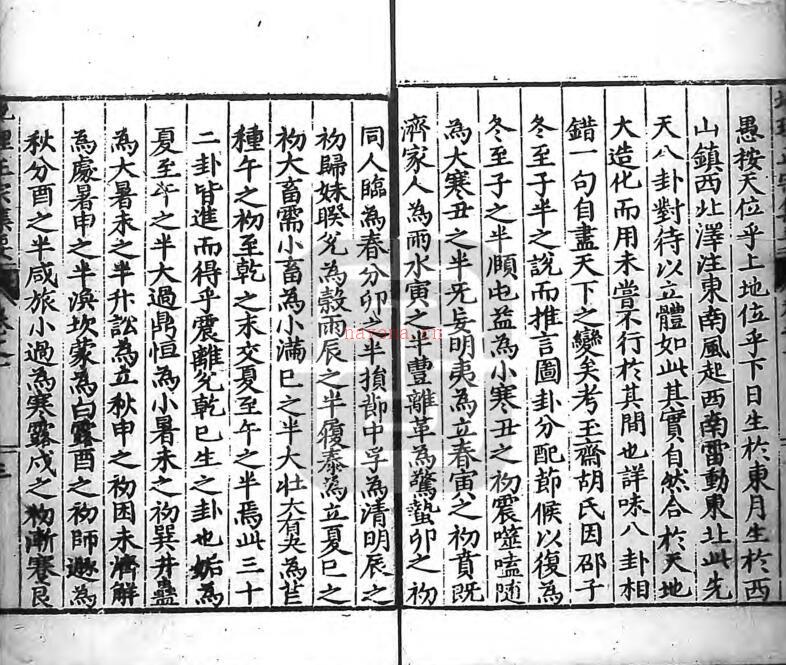 愚按天位乎上地位乎下日生於東月生於西
山鎮西北澤注東南風起西南雷動東北此先
天八卦對待以立體如此其實自然合於天地
大造化而用未嘗不行於其間也詳味八卦相
錯一句自盡天下之變矣考玉齋胡氏因邵子
冬至子半之說而推言圖卦分配節候以復為
冬至子之半頤屯益為小寒丑之初震噬嗑隨
為大寒丑之半无妄明夷為立春寅之初賁既
濟家人為雨水寅之半豐離革為驚蟄卯之初
同人臨為春分卯之半損節中孚為清明辰之
初歸妹睽兌為穀雨辰之半履泰為立夏巳之
初大畜需小畜為小滿巳之半大壯大有夬為芒
種午之初至乾之末交夏至午之半焉此三十
二卦皆進而得乎震離兌乾已生之卦也姤為
夏至午之半大過鼎恒為小暑未之初巽井蠱
為大暑未之半升訟為立秋申之初困未濟解
為處暑申之半渙坎蒙為白露酉之初師遯為
秋分酉之半咸旅小過為寒露戌之初漸蹇艮
地理正宗集要
三
hayona.cn